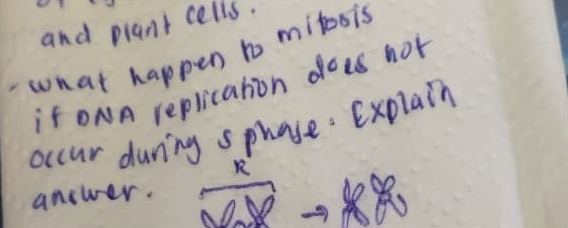 and plant cells.
- what happen to mitosis
if DNA replication does not
occur during s phase. Explain
answer.
R